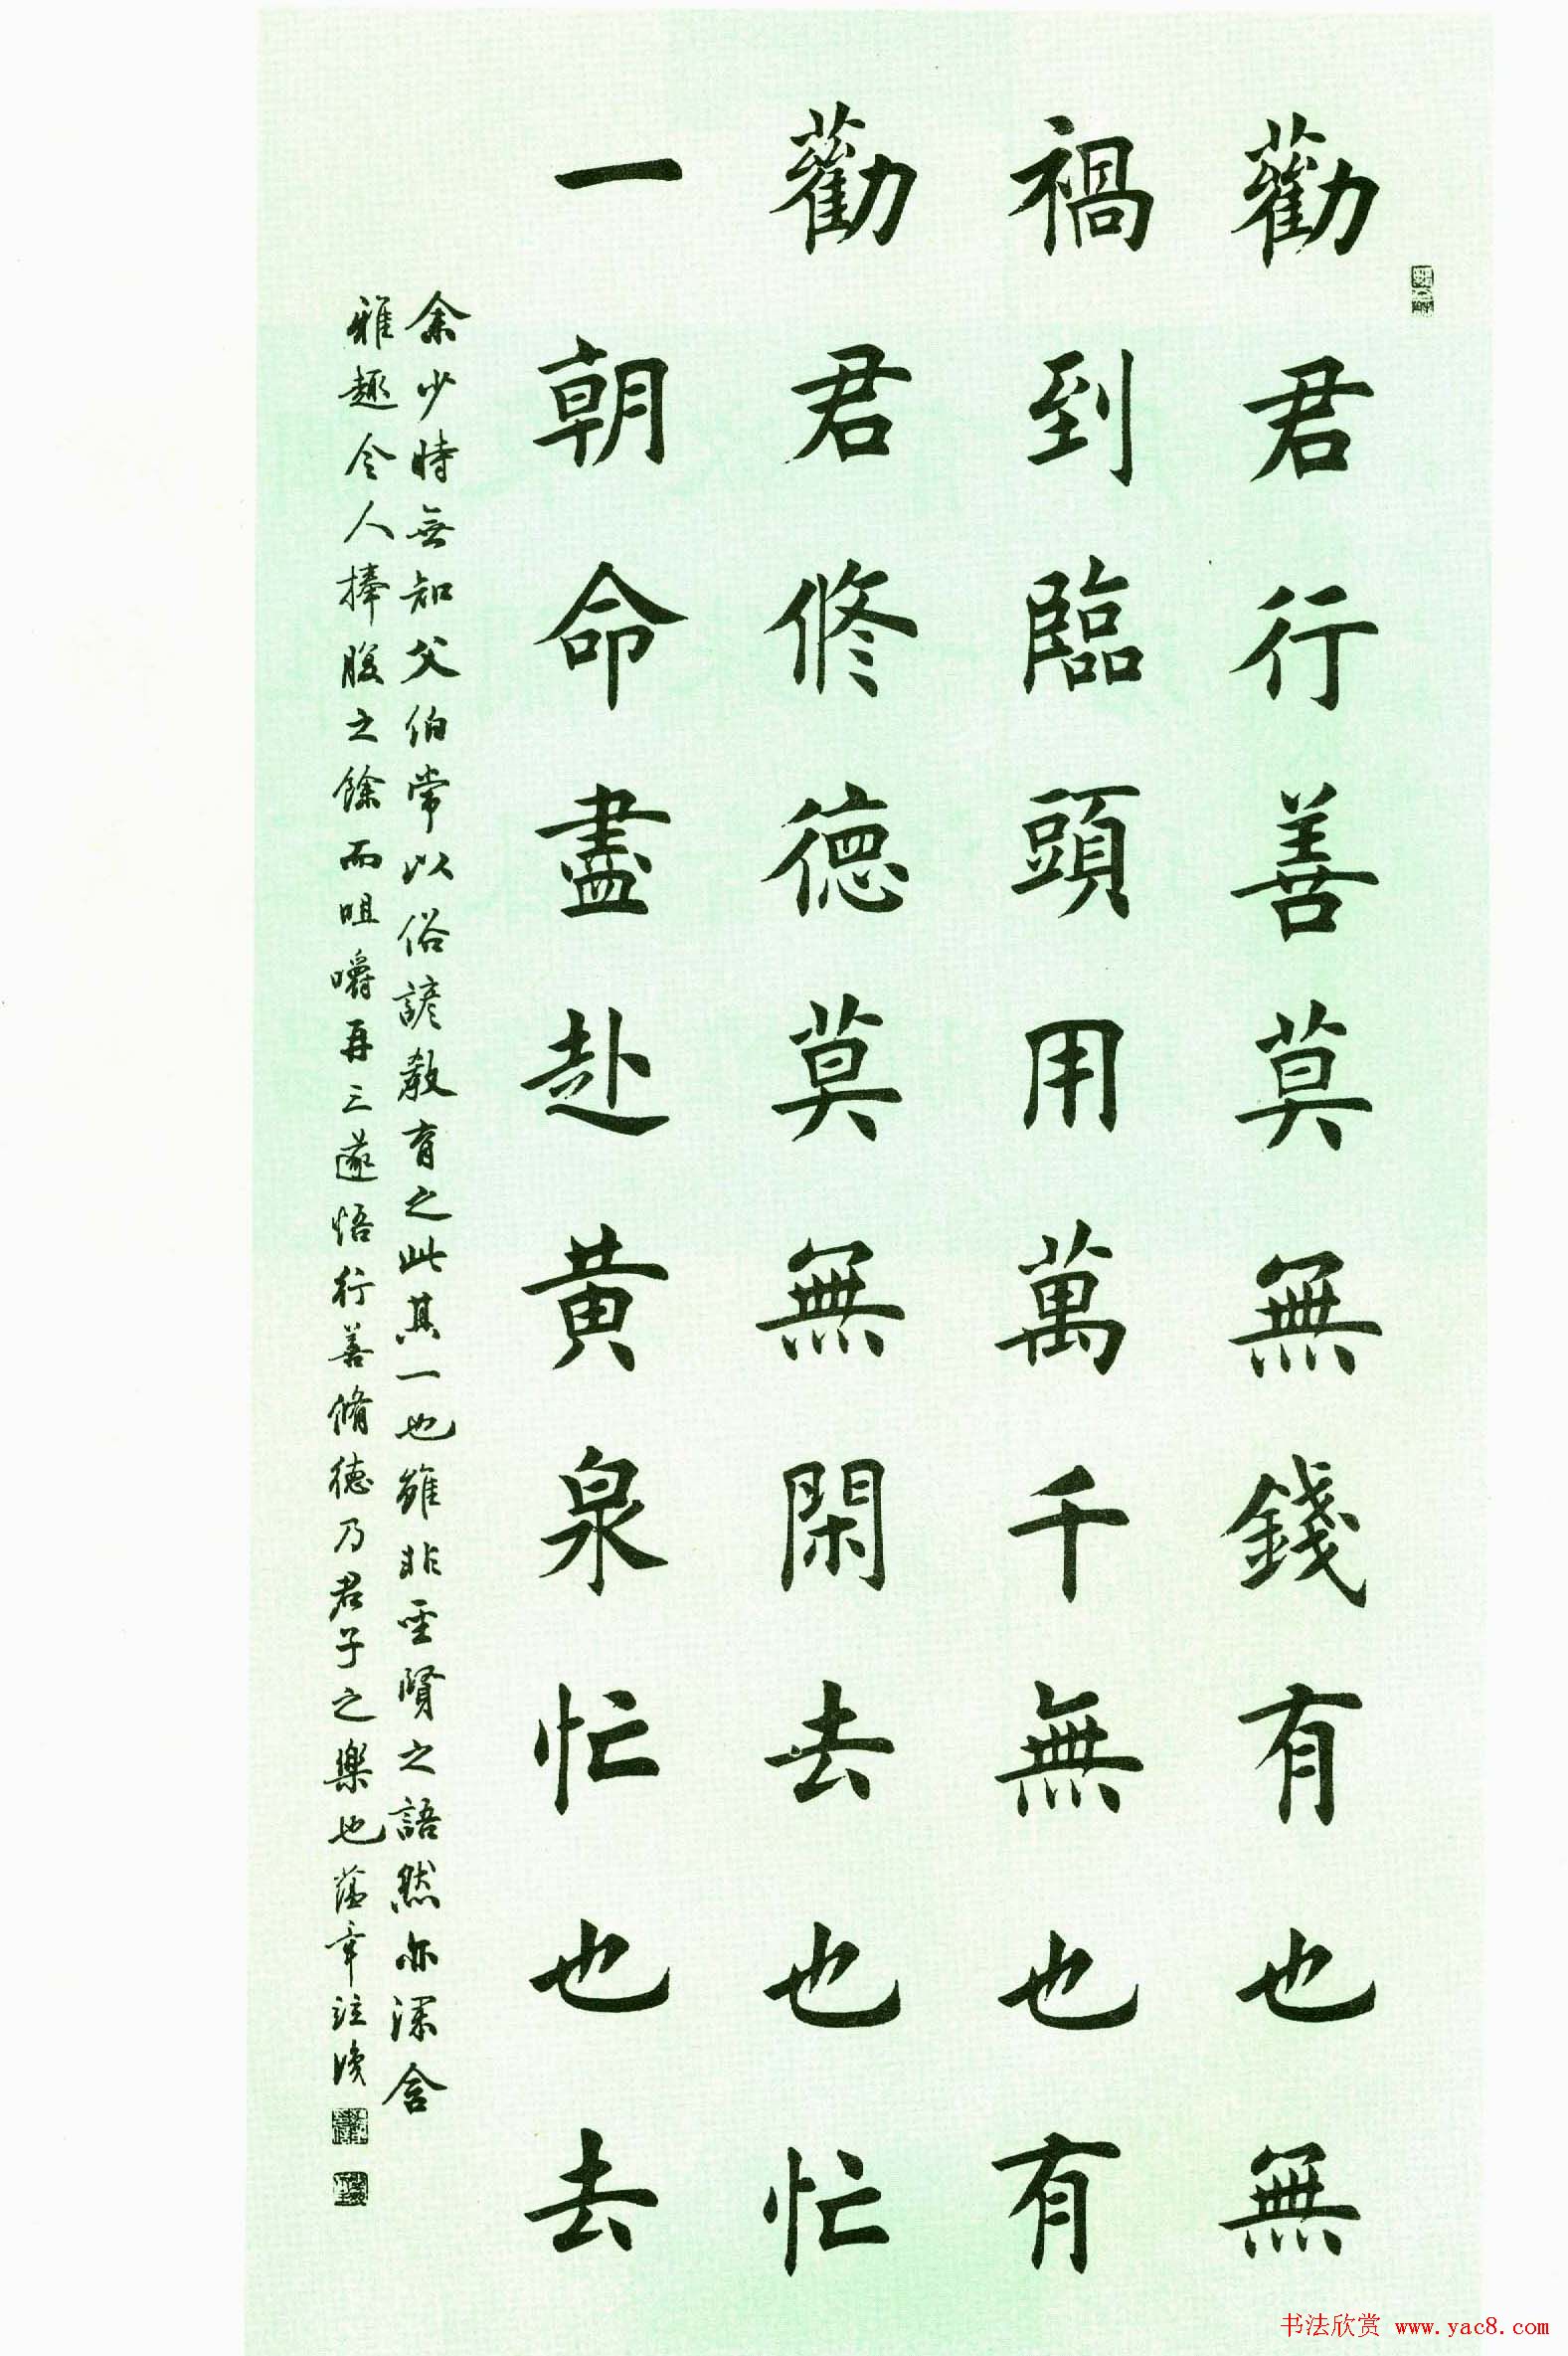 勸君行善莫無錢有也無
禍到臨頭用萬千無也有
勸君修德莫無閑去也忙
一朝命盡赴黃泉忙也去
余少時無知父伯常以俗諺教育之此其一也雖非聖賢之語然亦深含
雅趣令人捧腹之餘而咀嚼再三遂悟行善脩德乃君子之樂也蔭章註後
书法欣赏 www.yac8.com